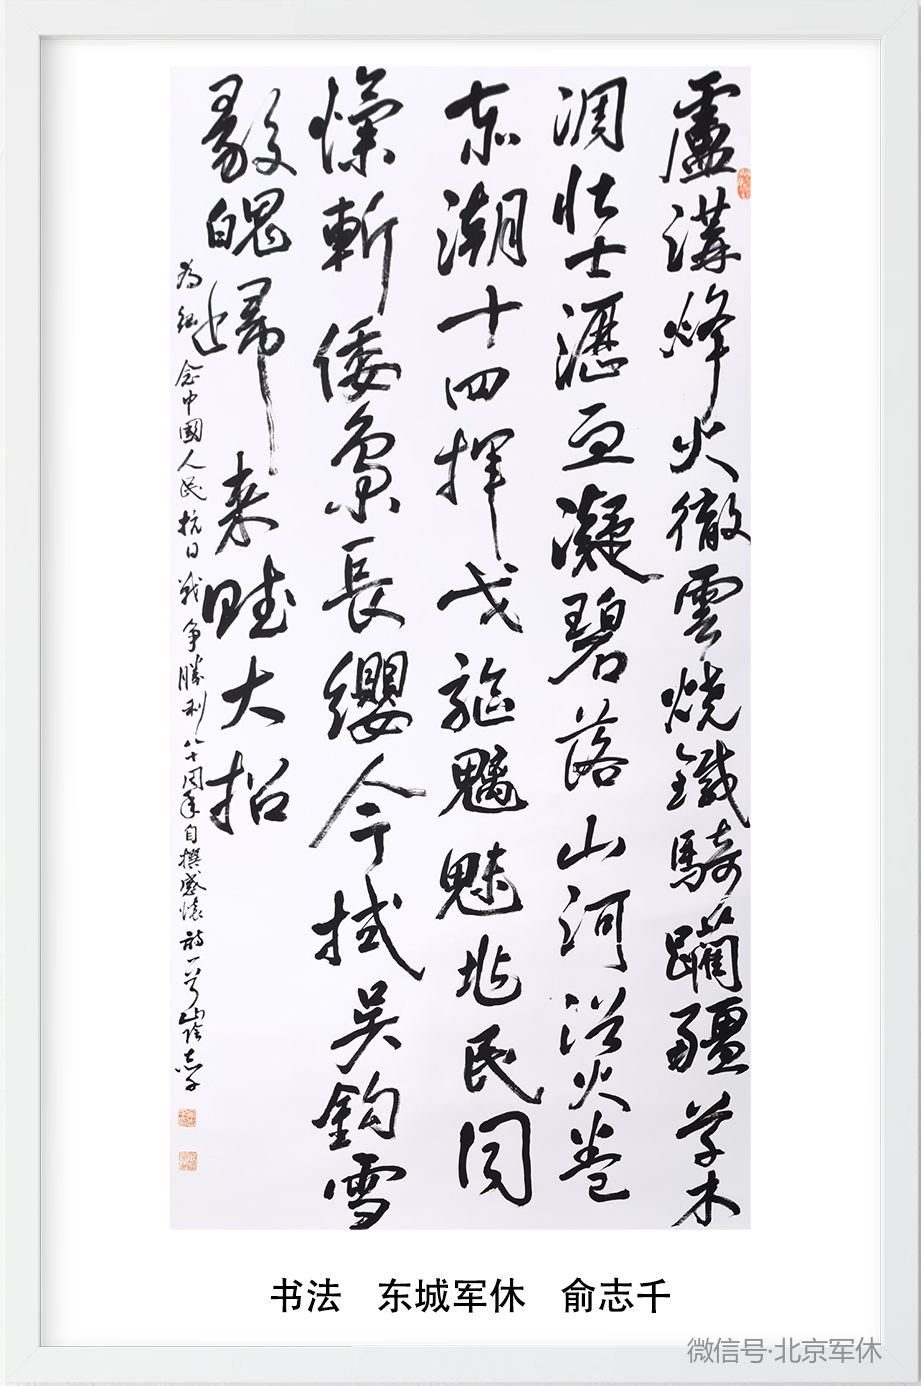 盧溝烽火徹雲燒鐵騎躪疆草木
凋壯士瀝血凝碧落山河浴火卷
东潮十四揮戈驱魑魅兆民同
斬倭梟長纓今拭吴鈎雪
毅魄歸来賦大招
为紀念中國人民抗日戰争勝利八十周年自撰感懷詩一首山陰志千
书法 东城军休 俞志千
微信号·北京军休